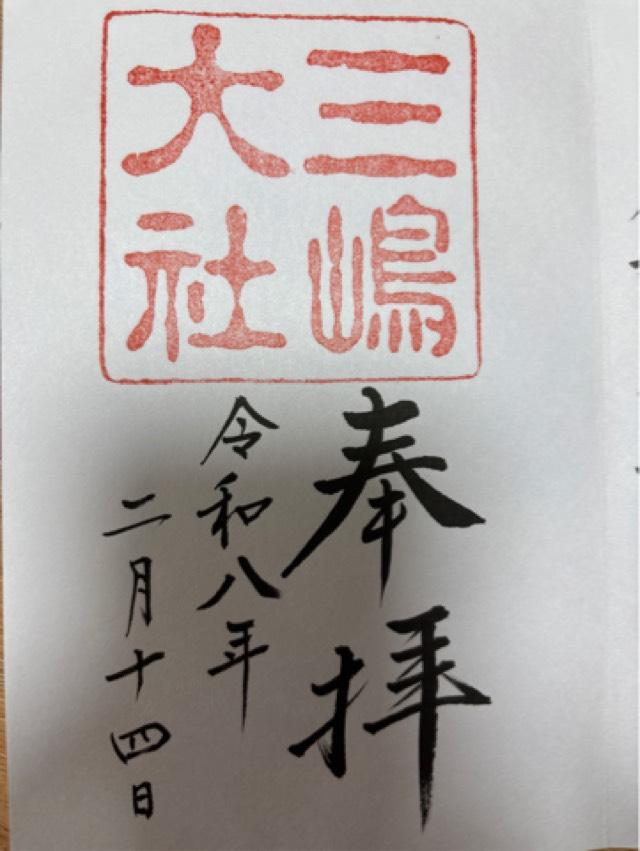 三嶋
大社
奉拝
令和八年
二月十四日